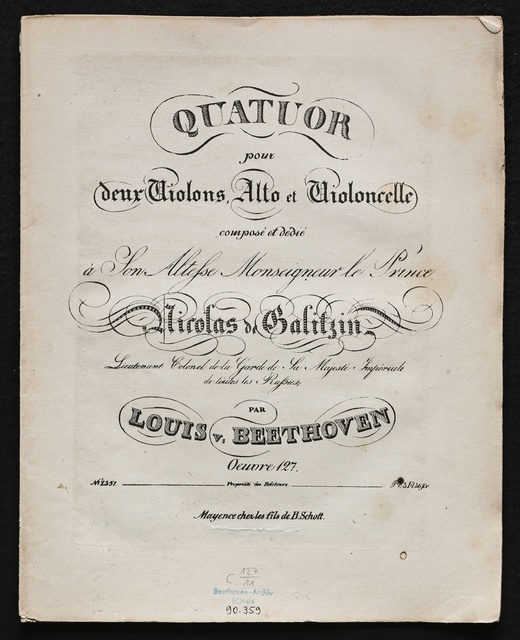 QUATUOR
pour
deux Violons, Alto et Violoncelle
composé et dédié
à Son Altesse Monseigneur le Prince
Nicolas de Galitzin
Lieutenant Colonel de la Garde de Sa Majesté Impériale
de toutes les Russies,
PAR
LOUIS v. BEETHOVEN
Oeuvre 127.
Nº 2351. Propriété des Editeurs.
Mayence chez les fils de B. Schott.
C 127/11
Beethoven-Archiv
BONN
90-359